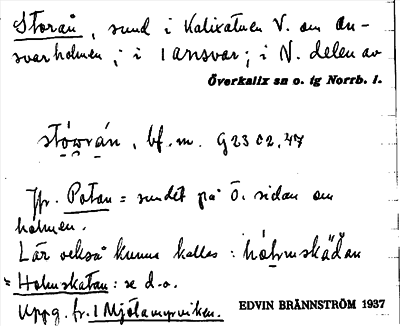 Storån, sund i Kalixälven V. om An-
svarholmen; i 1 ansvar; i N. delen av
Överkalix sn o. tg Norrb. l.
stó̱wrán, bf. m. G 23 02,47
Jfr. Potan = sundet på Ö. sidan om
holmen.
Lär också kunna kallas: hólmskä́dan
= Holmskatan: se d.o.
Uppg. fr. 1 Mjölamyrviken.
EDVIN BRÄNNSTRÖM 1937